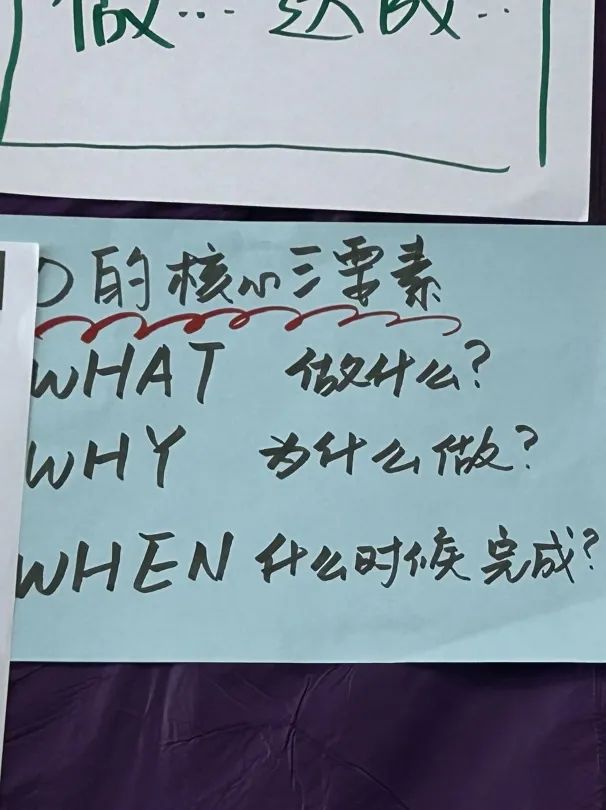 做... 达成...
O的核心三要素
WHAT 做什么?
WHY 为什么做?
WHEN 什么时候完成?